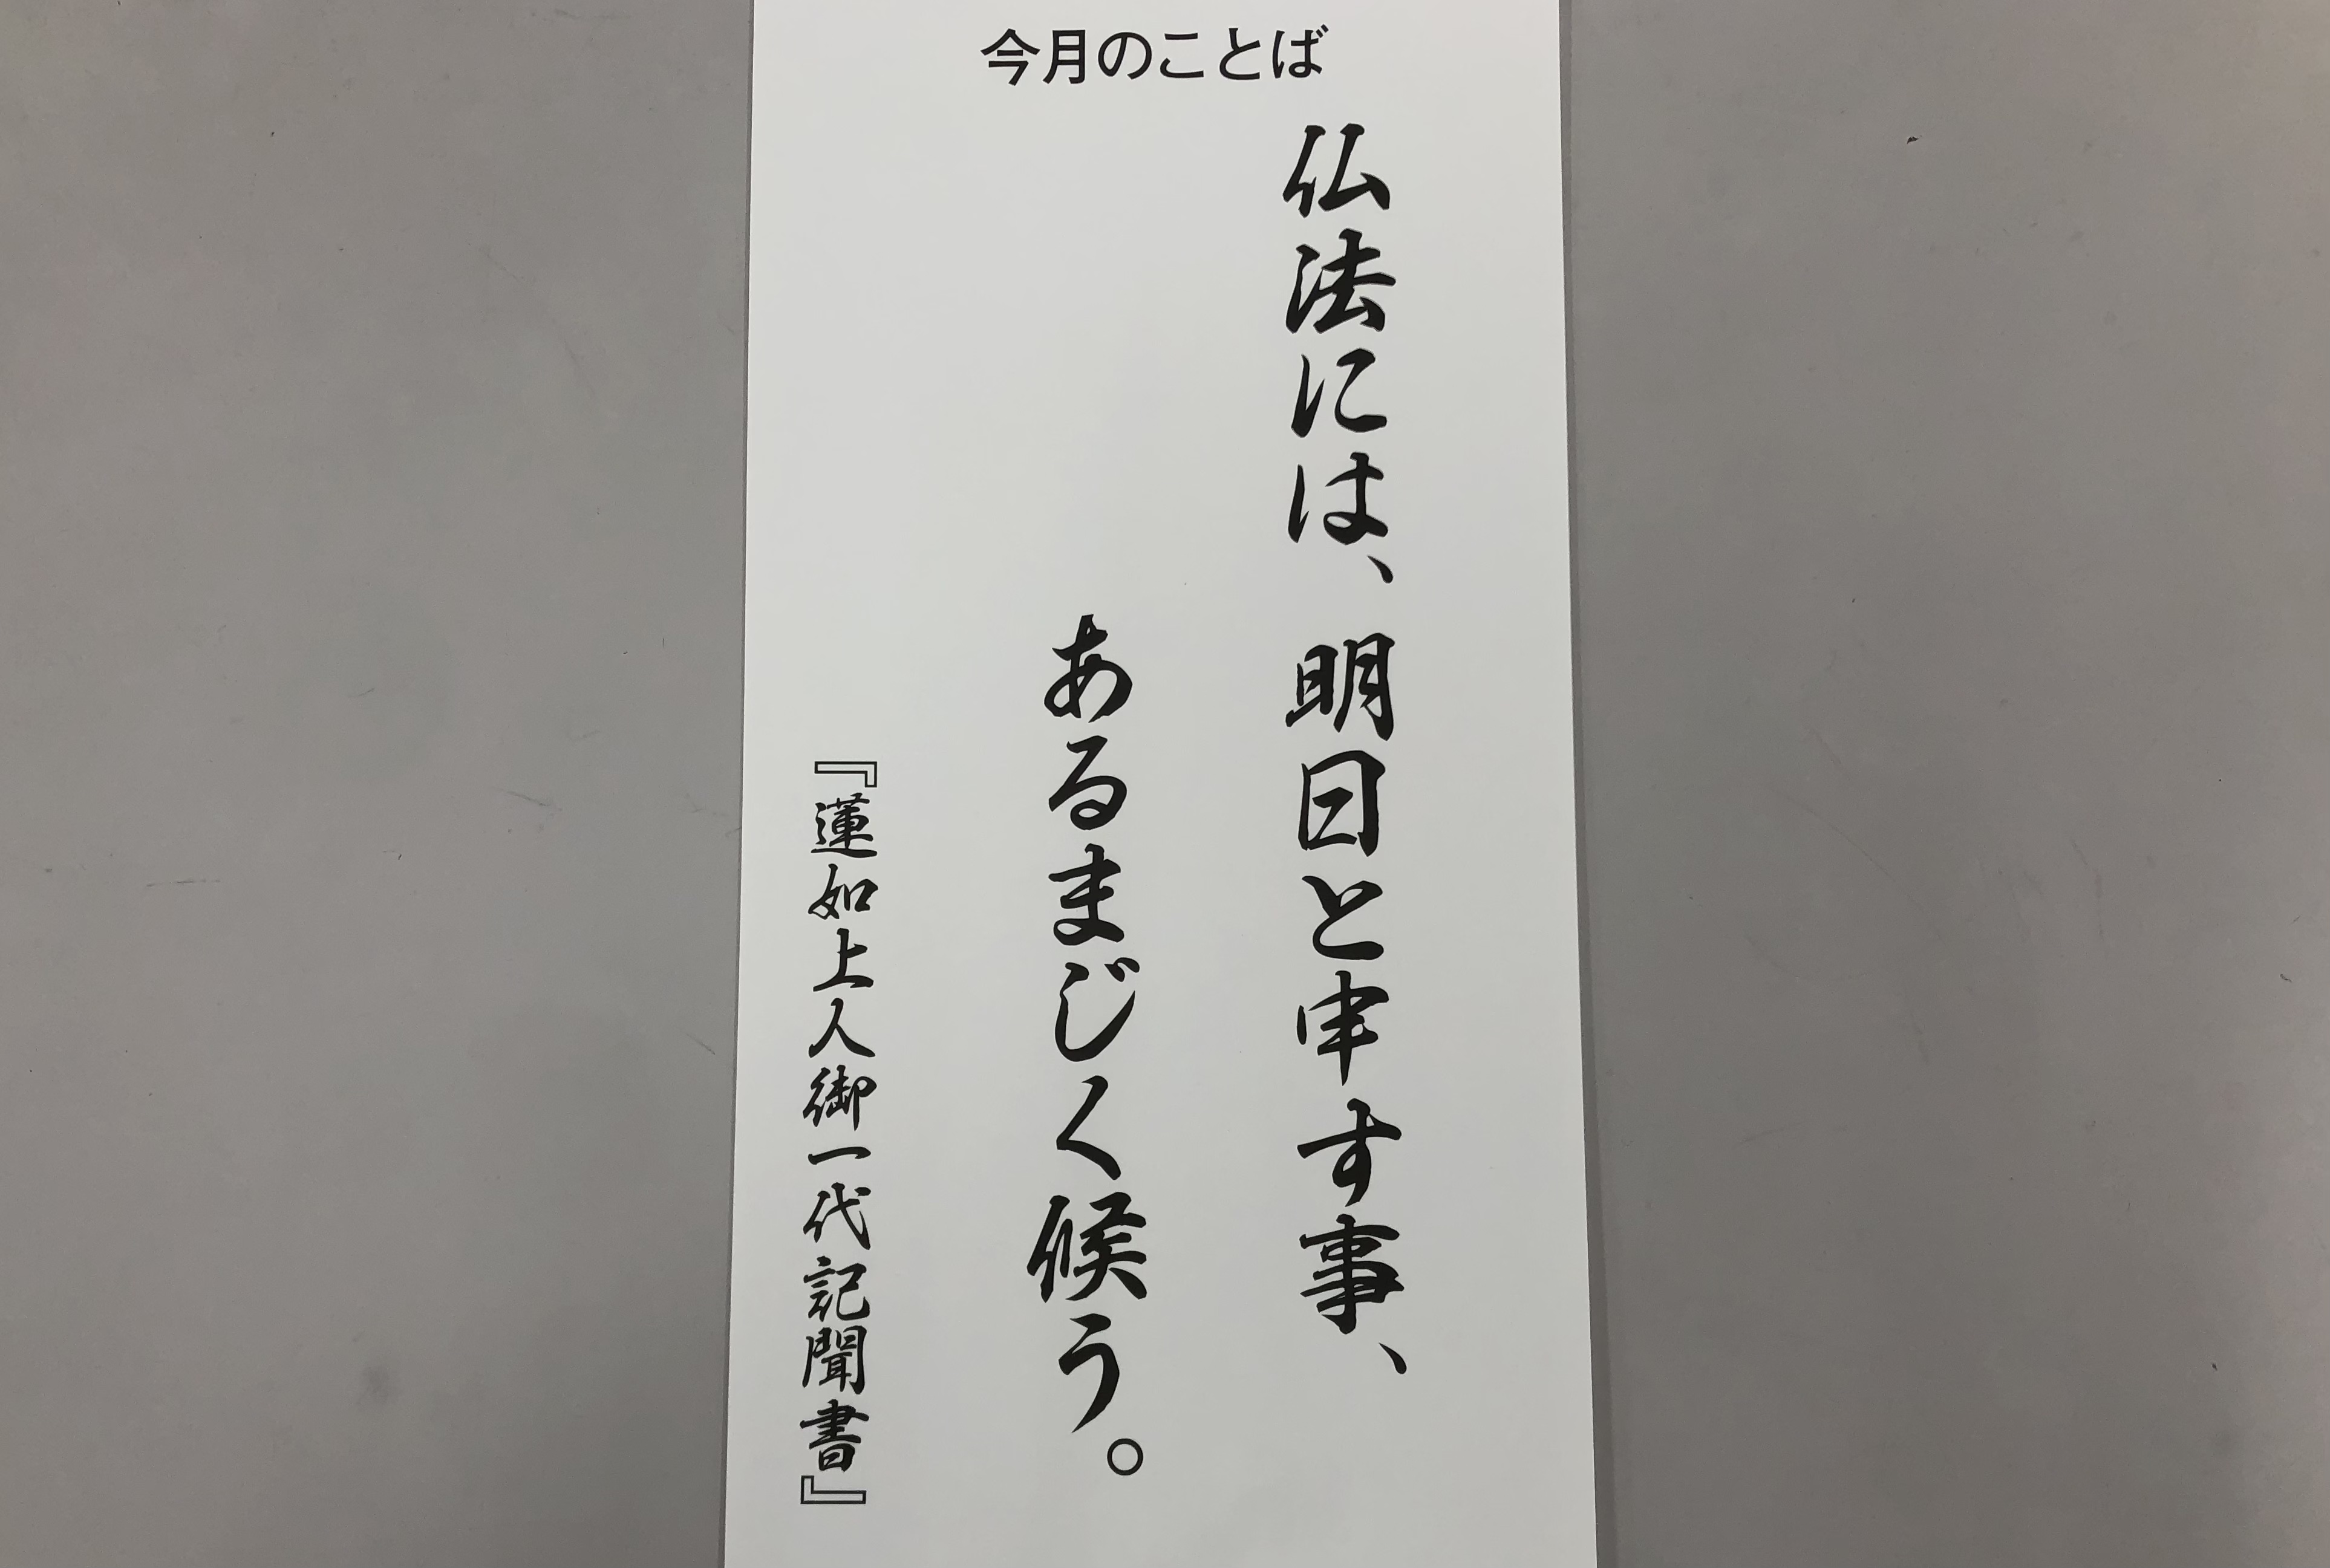 今月のことば
仏法には、明日と申す事、
あるまじく候う。
『蓮如上人御一代記聞書』